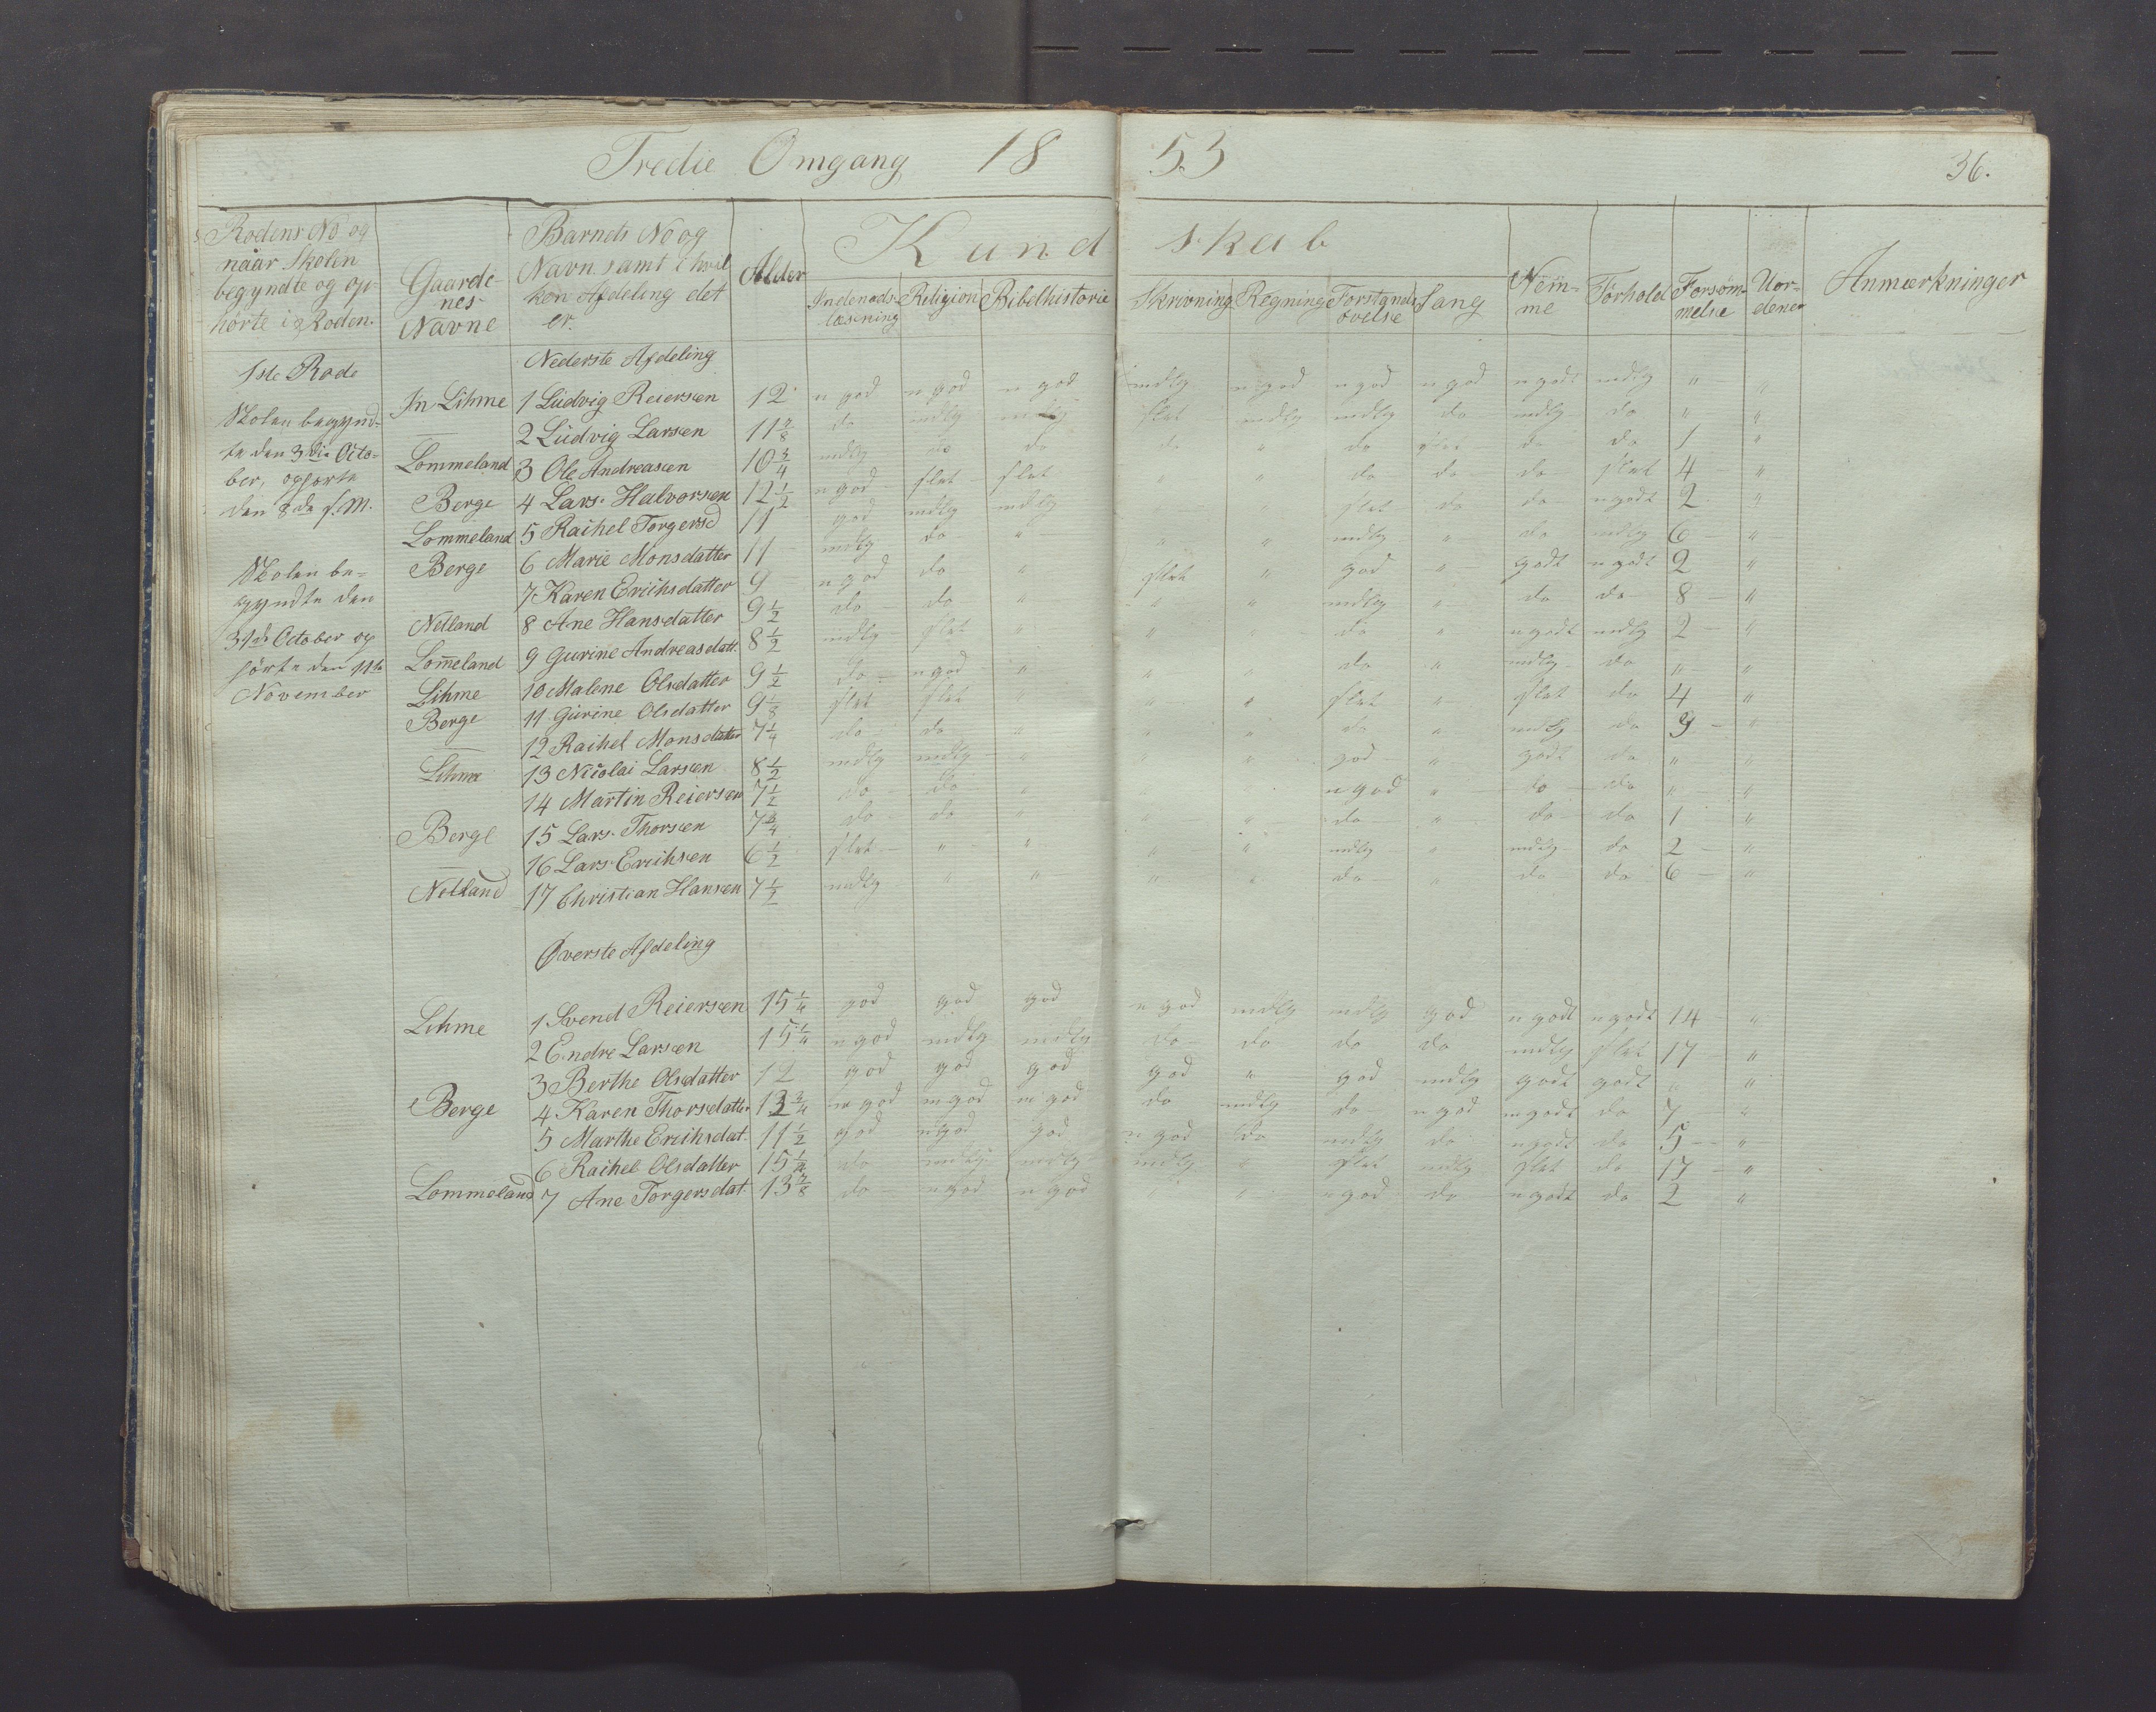 Tredie Omgang 1853
36.
Rodens No og naar Skolen begyndte og ophørte i Roden.
Gaardenes Navne
Barnets No og Navn samt i hvilken Afdeling det er.
Alder
Kundskab
Indenadslæsning
Religion
Bibelhistorie
Skrivning
Regning
Forstandsøvelse
Sang
Nemme
Forhold
Forsømmelse
Uordener
Anmærkninger
1ste Rode
Nederste Afdeling
Skolen begynd-
te den 3die Octo-
ber, ophørte
den 8de s. M.
Skolen be-
gyndte den
31te October op
hörte den 11te
November
Lihme 1 Ludvig Reiersen 12 n god n god n god mdlg n god n god n god n godt mdlg " "
— 2 Ludvig Larsen 11 7/8 do mdlg mdlg slet mdlg mdlg do mdlg do " "
Lommeland 3 Ole Andreasen 10 3/4 mdlg do do do " do slet do do 1 "
Berge 4 Lars Halvorsen 12 1/2 n god slet slet " " do do do slet 4 "
Lommeland 5 Raihel Torgersd 11 god mdlg mdlg slet do do n godt 2 "
Berge 6 Marie Monsdatter 11 mdlg do " " " mdlg " do mdlg 6 "
7 Karen Erichsdatter 9 n god do " slet " god " godt n godt 2 "
Nelland 8 Ane Hansdatter 9 1/2 do do " " " mdlg " do do 8 "
Lom̄eland 9 Gurine Andreasdatt. 8 1/2 mdlg slet " " do " n godt mdlg 2 "
Lihme 10 Malene Olsdatter 9 1/2 do n god " " do " mdlg do " "
Berge 11 Gurine Olsdatter 9 1/8 slet slet " " slet " slet do 4 "
— 12 Raihel Monsdatter 7 1/4 do do " " " do " mdlg do 9 "
Lihme 13 Nicolai Larsen 8 1/2 mdlg mdlg " " god " godt do " "
14 Martin Reiersen 7 1/2 do do " " " n god " do do " "
Berge 15 Lars Thorsen 7 3/4 do do " " " do " do do 1 "
— 16 Lars Erichsen 6 1/2 slet " " " " mdlg " mdlg do 2 "
Nelland 17 Christian Hansen 7 1/2 mdlg " " " " do " do do 6 "
Øverste Afdeling
Lihme 1 Svend Reiersen 15 1/4 god god god n god mdlg mdlg god n godt n godt 14 "
2 Endre Larsen 15 1/4 n god mdlg mdlg do do do do mdlg slet 17 "
3 Berthe Olsdatter 12 god god god god " god mdlg godt godt " "
Berge 4 Karen Thorsdatter 13 3/4 m god m god m god do mdlg do n god m godt do 7 "
5 Marthe Erichsdat. 11 1/2 god n god god n god do mdlg do n godt do 5 "
6 Raihel Olsdatter 15 1/2 do mdlg mdlg mdlg " slet mdlg slet do 17 "
Lommeland 7 Ane Torgersdat. 13 7/8 do n god n god " " n god do n godt do 2 "